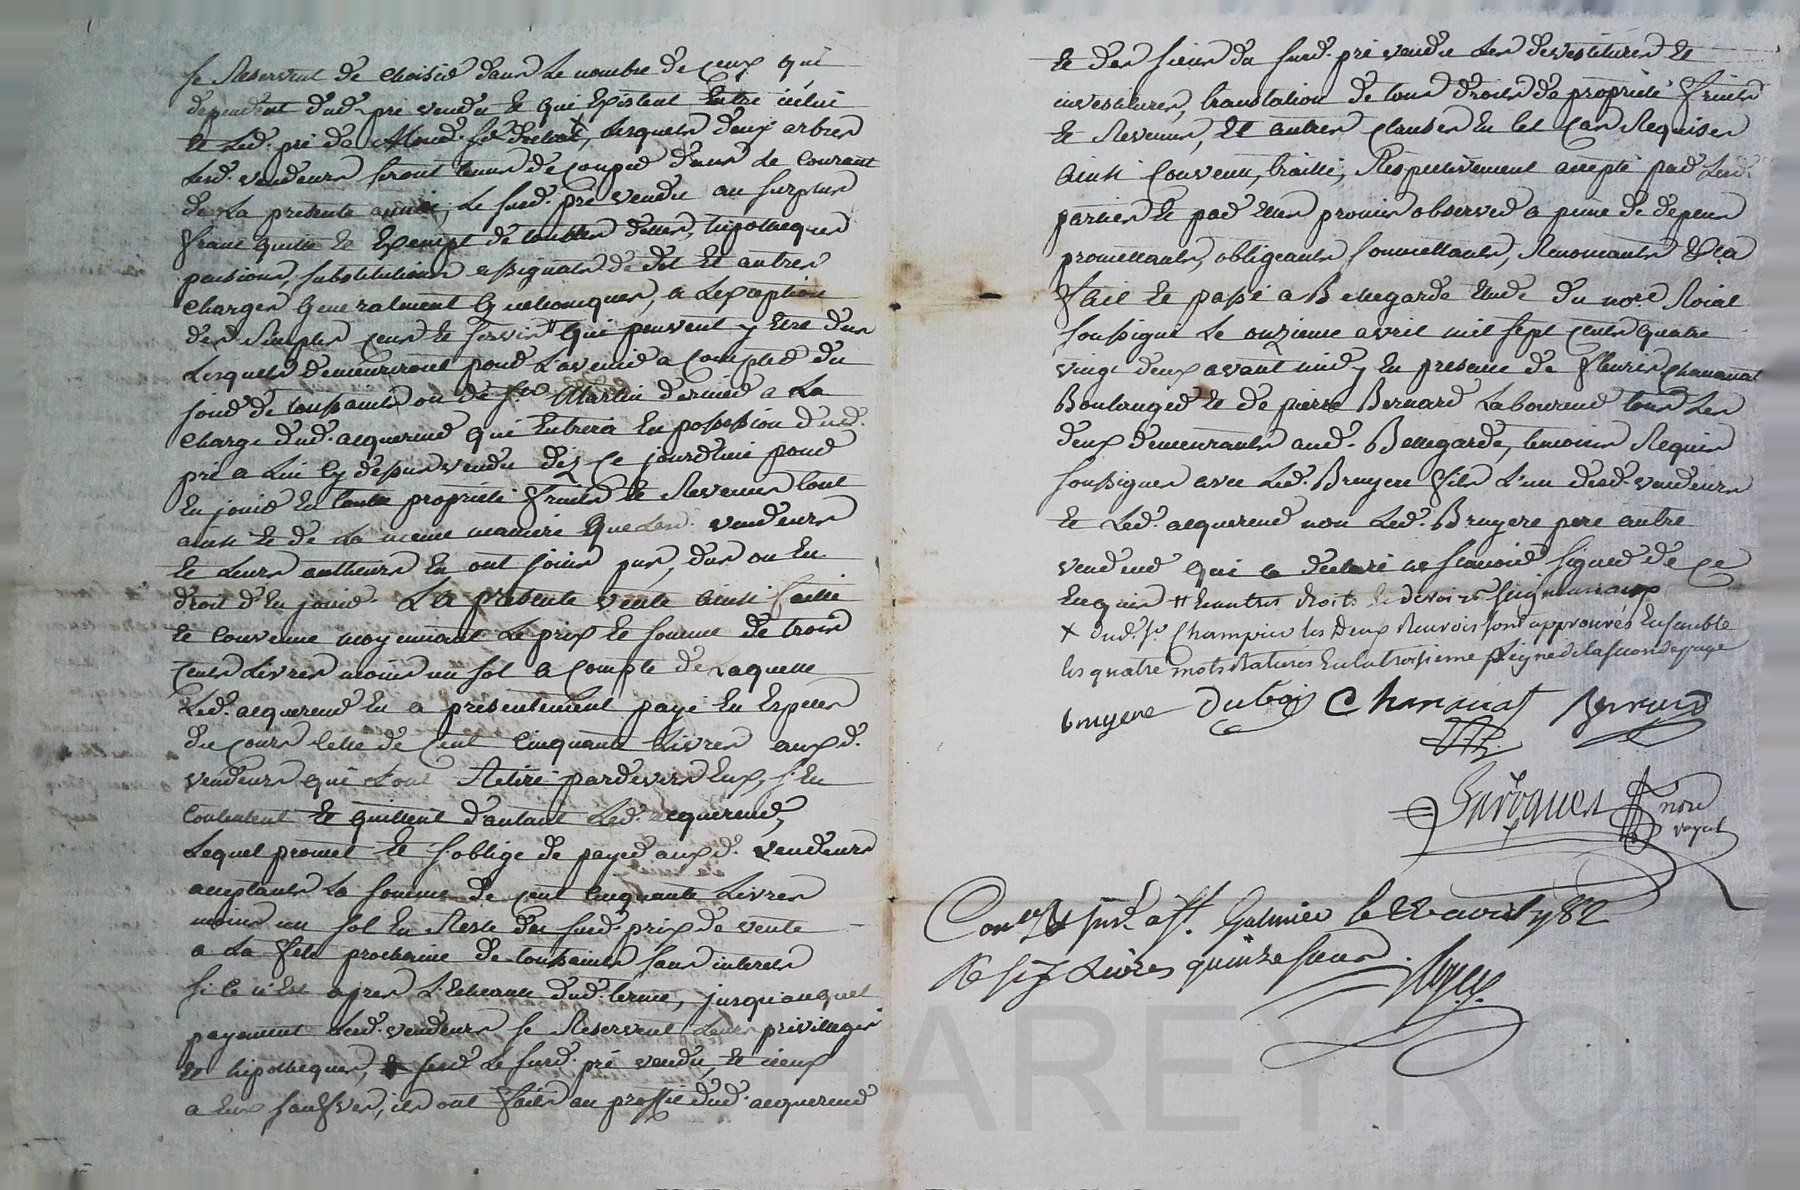 se Reservent de choisir dans le nombre de ceux qui
dependent dud. pré vendu et qui Existent Entre icelui
et Led. pré de lesquels deux arbres
Lesd. vendeurs seront tenus de couper dans le courant
de La presente année, Le susd. pré vendu au surplus
franc quitte et Exempt de touttes dettes, hipotheques
pensions, substitutions assignats de dot et autres
charges Generalement Quelconques, a Lexception
des simples cens et servis # qui peuvent y Etre dus
Lesquels demeureront pour L'avenir a Compter du
jour de toussaints ou de St Martin dernier a La
charge dud. acquereur qui Entrera En possession dud.
pré a Lui cy dessus vendu dez Ce jourdhui pour
En jouir En toutte propriété fruits et Revenus tout
ainsi et de La meme maniere Que Lesd. vendeurs
et Leurs autheurs En ont joui pu, dus ou Eu
droit d'En jouir. La presente vente ainsi faitte
et Convenue moyennant Le prix et somme de trois
cents Livres moins un sol a compte de Laquelle
Led. acquereur En a presentement payé En Especes
du Cours celle de Cent Cinquante Livres auxd.
vendeurs qui L'ont Retiré pardevers Eux, s'En
Contentent et quittent d'autant Led. acquereur,
Lequel promet et s'oblige de payer auxd. vendeurs
acceptants La somme de cent Cinquante Livres
moins un sol En Reste du susd. prix de vente
a La fete prochaine de toussaints sans interets
si ce n'Est apres L'Echeance dud. terme, jusqu'auquel
payement Lesd. vendeurs se Reservent Leurs privilleges
et hipotheques, sur Le susd. pré vendu, et iceux
a Eux saufves, ils ont faits au proffit dud. acquereur
et des siens du susd. pré vendu Les devestitures et
investitures, translation de tous droits de propriété fruits
et Revenus, et autres clauses En tel cas Requises
Ainsi Convenu, traitté, Respectivement accepté par Lesd.
parties et par Elles promis observer a peine de depens
promettants, obligeants soumettants, Renonceants &ca
fait et passé a Bellegarde Etude du nore Roial
soussigné Le onzieme avril mil sept cents quatre
vingt deux avant midy En presence de fleurie Chananat
Boulanger et de pierre Bernard Laboureur tous Les
deux demeurants aud. Bellegarde, temoins Requis
soussignés avec Led. Bruyere fils L'un desd. vendeurs
et Led. acquereur non Led. Bruyere pere autre
vendeur qui a declaré ne sçavoir signer de ce
Enquis # Et autres droits et devoirs seigneuriaux
X dud. Sr. Champin les deux Renvois sont approuvés Ensemble
les quatre mots Raturés En la troisieme Ligne de la seconde page
bruyere Dubois Chananat Bernard
nore
royal
Conlé & Insé. a St. Galmier le 22 avril 1782
Re six Livres quinze sous.
HAREYRON